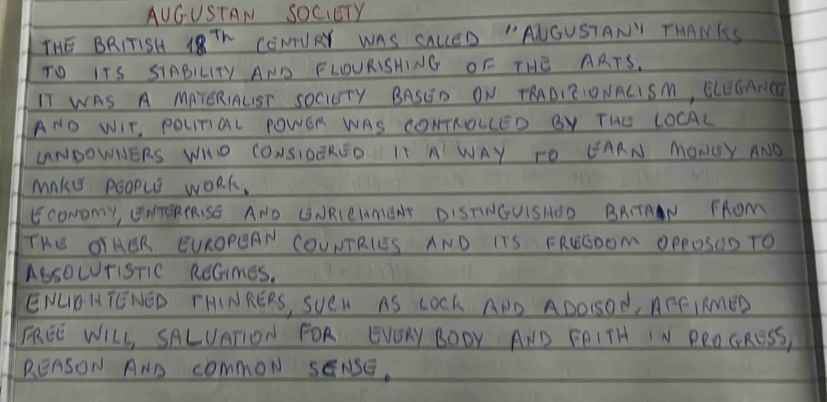 AUGUSTAN SOCIETY
THE BRITISH 18TH CENTURY WAS CALLED "AUGUSTAN" THANKS
TO ITS STABILITY AND FLOURISHING OF THE ARTS.
IT WAS A MATERIALIST SOCIETY BASED ON TRADIZIONALISM, ELEGANCE
AND WIT. POLITICAL POWER WAS CONTROLLED BY THE LOCAL
LANDOWNERS WHO CONSIDERED IT A WAY TO EARN MONEY AND
MAKE PEOPLE WORK.
ECONOMY, ENTERPRISE AND ENRICHMENT DISTINGUISHED BRITAIN FROM
THE OTHER EUROPEAN COUNTRIES AND ITS FREEDOM OPPOSED TO
ABSOLUTISTIC REGIMES.
ENLIGHTENED THINKERS, SUCH AS LOCK AND ADDISON, AFFIRMED
FREE WILL, SALVATION FOR EVERYBODY AND FAITH IN PROGRESS,
REASON AND COMMON SENSE.